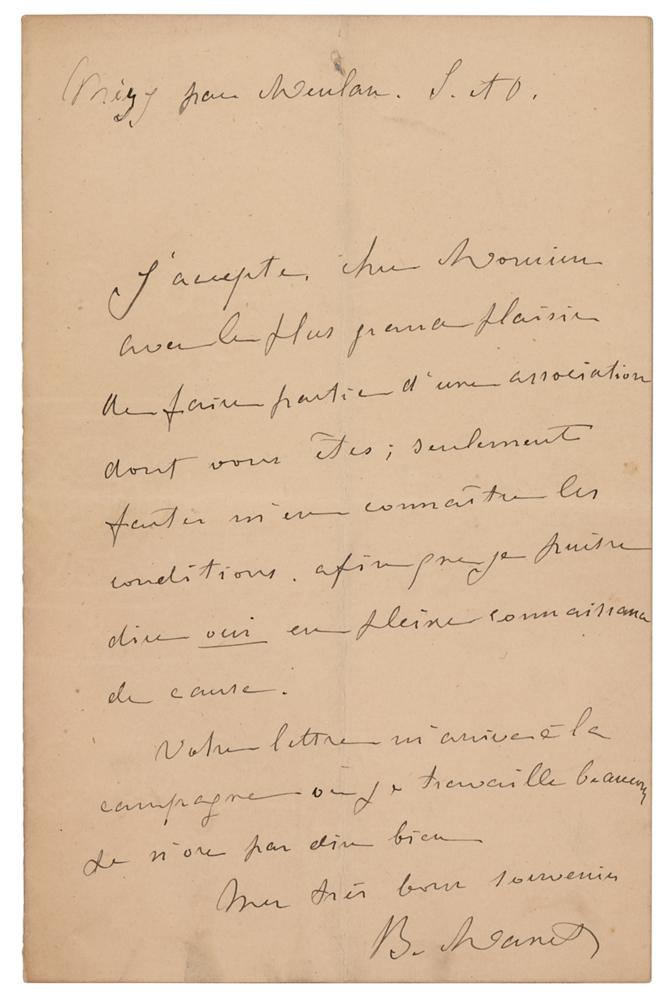 Mézy par Meulan. S. et O.
J'accepte, cher Monsieur
avec le plus grand plaisir
de faire partie d'une association
dont vous êtes; seulement
faites m'en connaître les
conditions. afin que je puisse
dire oui en pleine connaissance
de cause.
Votre lettre m'arrive à la
campagne où je travaille beaucoup
Je n'ose pas dire bien
Mes très bons souvenirs
B. Manet